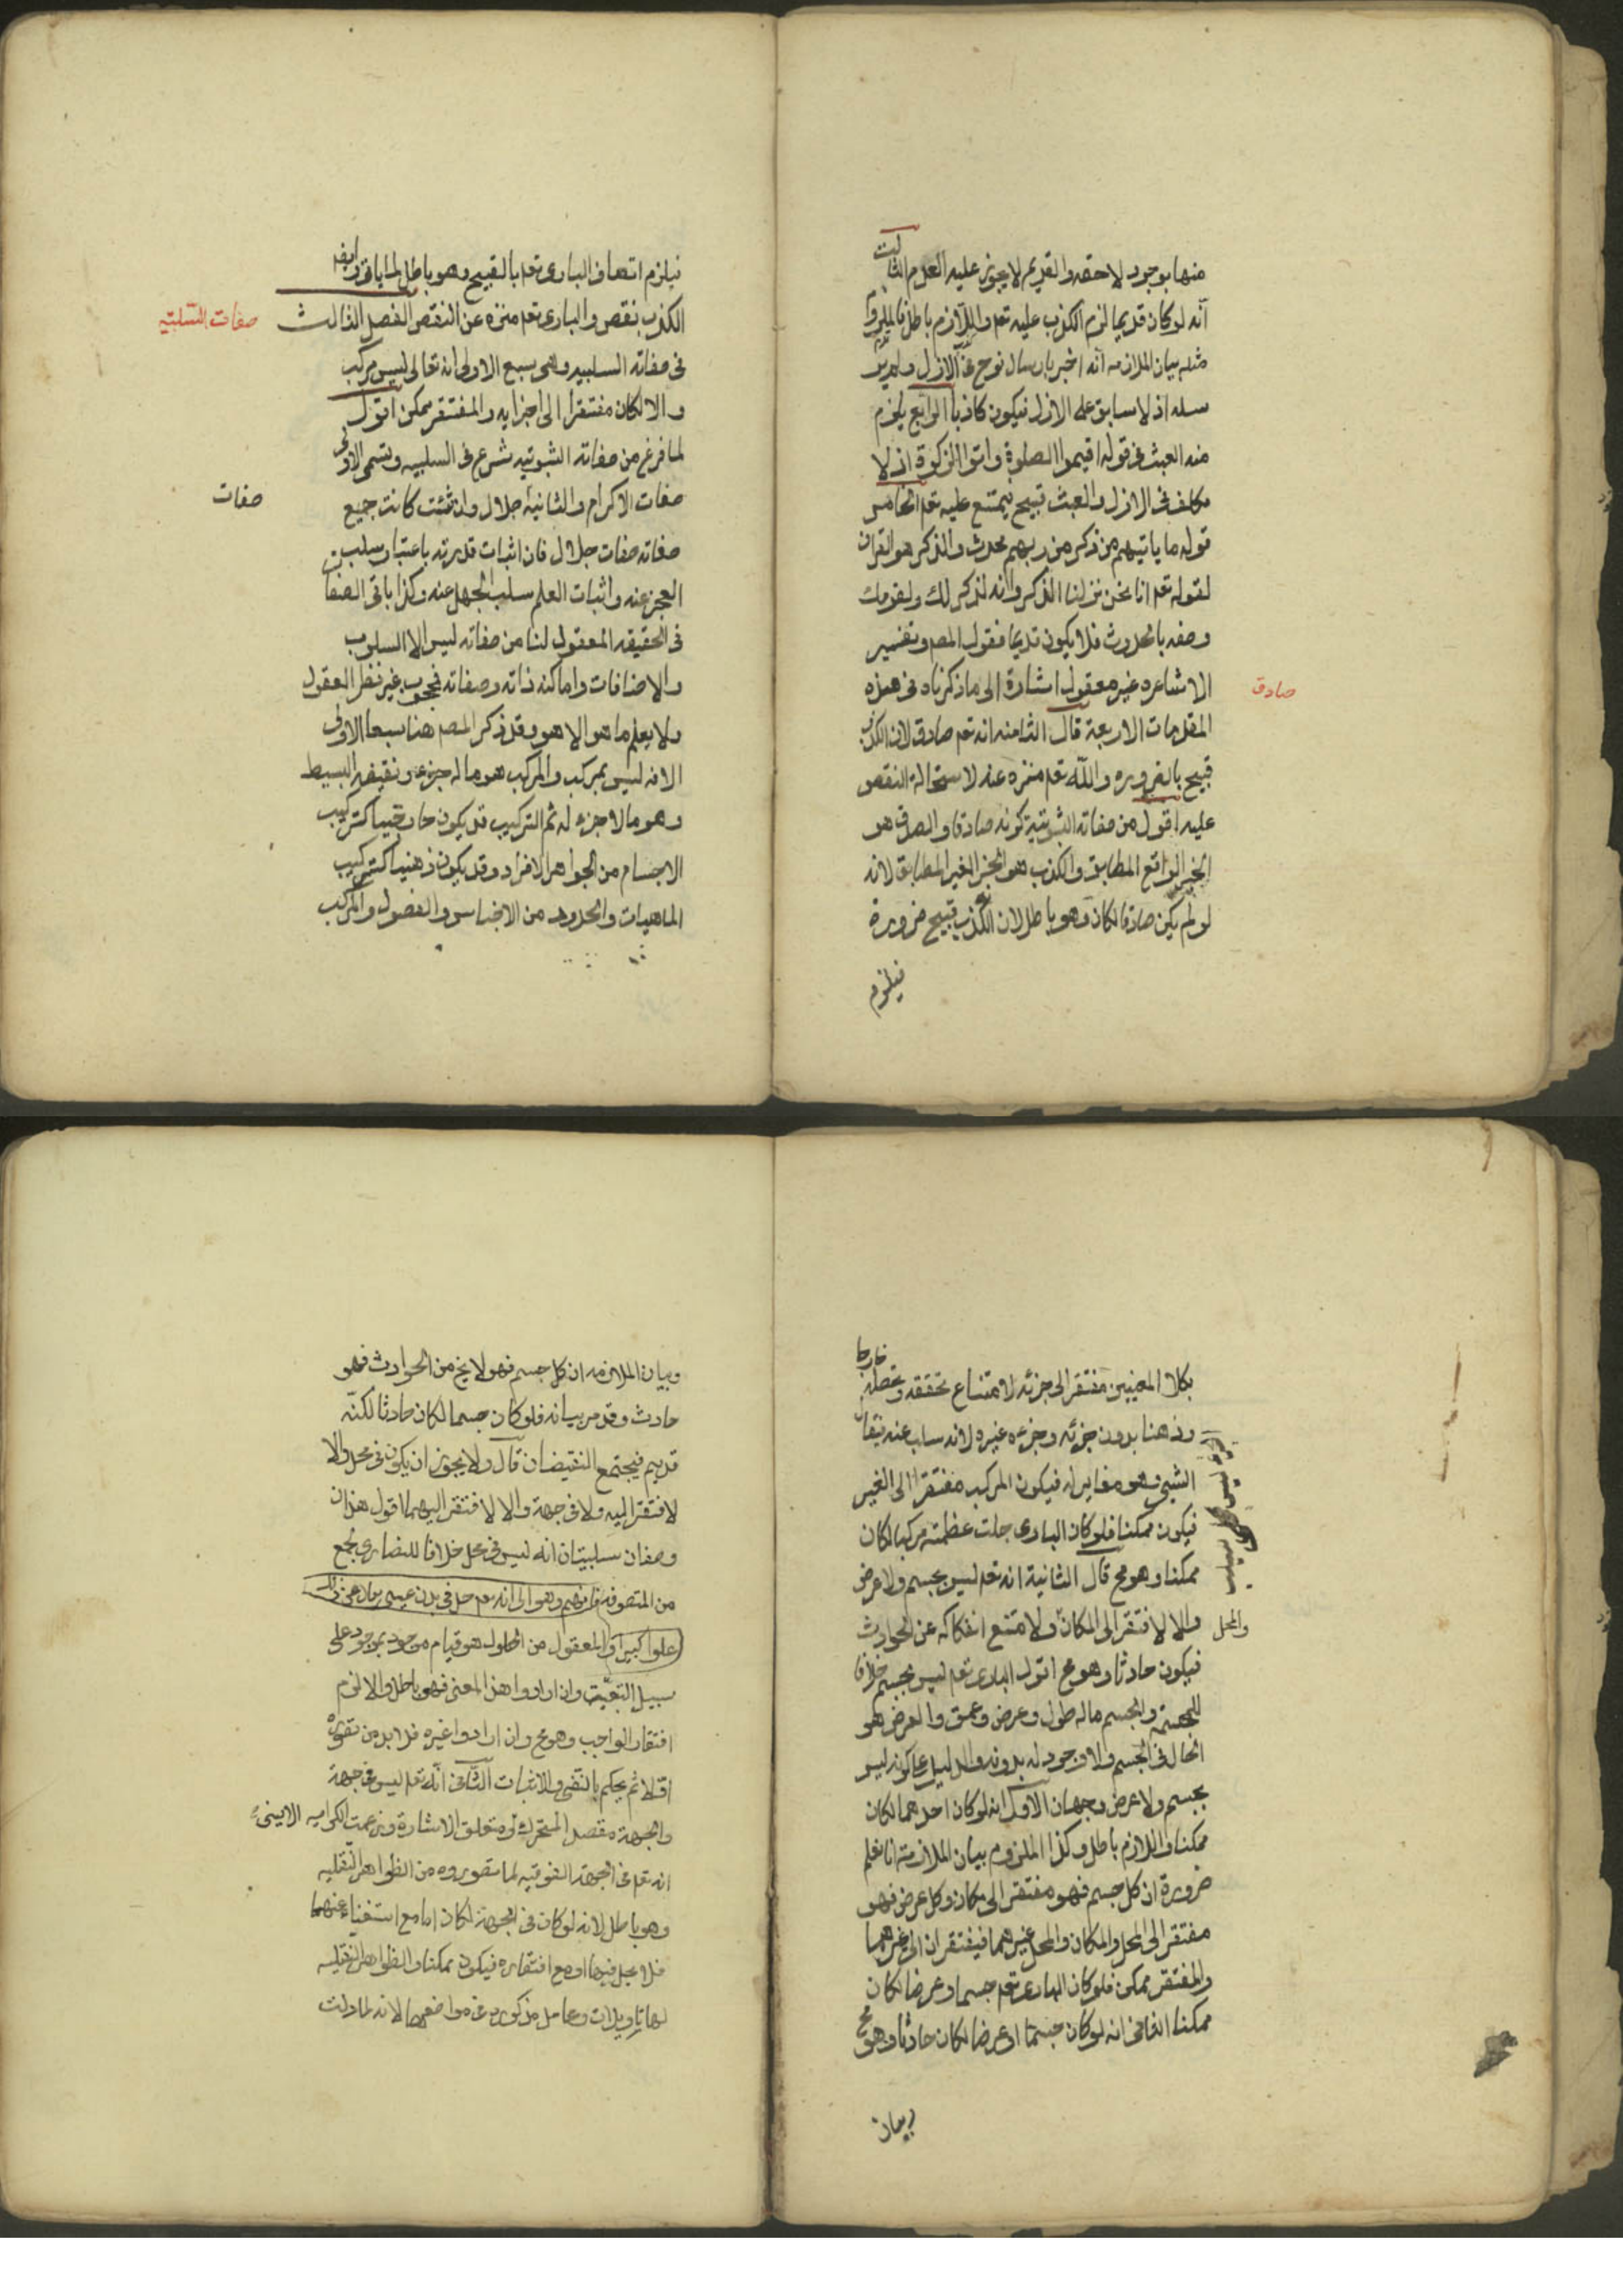 منها بوجود لاحقه والقديم لا يجوز عليه العدم الثالث
انه لو كان قديما لزم الكذب عليه تعم واللازم باطل فالملزوم
مثله بيان الملازمه انه اخبر بارسال نوح فى الازل ولم
سله اذ لا سابق على الازل فيكون كاذبا الرابع يلزم
منه العبث فى قوله اقيموا الصلوة واتوا الزكوة اذ لا
مكلف فى الازل والعبث قبيح يمتنع عليه تعم الخامس
قوله ما ياتيهم من ذكر من ربهم محدث والذكر هو القران
لقوله تعم انا نحن نزلنا الذكر وانه لذكر لك ولقومك
وصفه بالحدوث فلا يكون قديما فقول المص وتفسير
الاشاعره غير معقول اشارة الى ما ذكرناه فى هذه
صادق
المقدمات الاربعة قال الثامنه انه تعم صادق لان الكذب
قبيح بالضروره والله تعم منزه عنه لاستحالة النقص
عليه اقول من صفاته الثبوتية كونه صادقا والصدق هو
الخبر الواقع المطابق والكذب هو الخبر الغير المطابق لانه
لو لم يكن صادقا لكان وهو باطل لان الكذب قبيح ضرورة
فيلزم
فيلزم اتصاف البارى تعم بالقبيح وهو باطل لما ياتى وايضا
الكذب نقص والبارى تعم منزه عن النقص الفصل الثالث
صفات السلبيه
فى صفاته السلبيه وهى سبع الاولى انه تعالى ليس بمركب
والا لكان مفتقرا الى اجزايه والمفتقر ممكن اقول
لما فرغ من صفاته الثبوتيه شرع فى السلبيه وتسمى الاولى
صفات
صفات الاكرام والثانية جلال وان شئت كانت جميع
صفاته صفات جلال فان اثبات قدرته باعتبار سلب
العجز عنه واثبات العلم سلب الجهل عنه وكذا باقى الصفات
فى الحقيقه المعقول لنا من صفاته ليس الا السلوب
والاضافات واما كنه ذاته وصفاته فمحجوب غير نظر العقول
ولا يعلم ما هو الا هو وقد ذكر المصم هنا سبعا الاولى
الانه ليس بمركب والمركب هو ما له جزء ونقيضه البسيط
وهو ما لا جزء له ثم التركيب قد يكون خارجيا كتركيب
الاجسام من الجواهر الافراد وقد يكون ذهنيا كتركيب
الماهيات والحدود من الاجناس والفصول والمركب
بكلا المعنيين مفتقر الى جزئه لامتناع تحققه وتحصله خارجا
وذهنا بدون جزئه وجزءه غيره لانه سلب عنه فيقال
الشيئ وهو مغاير له فيكون المركب مفتقرا الى الغير
فيكون ممكنا فلو كان البارى جلت عظمته مركبا لكان
ممكنا وهو مح قال الثانية انه تعم ليس بجسم ولا عرض
والا لافتقر الى المكان ولا متنع انفكاكه عن الحوادث
والمحل
فيكون حادثا وهو مح اقول البارى تعم ليس بجسم خلافا
للمجسمة والجسم ما له طول وعرض وعمق والعرض هو
الحال فى الجسم ولا وجود له بدونه والدليل على كونه ليس
بجسم ولا عرض وجهان الاول انه لو كان احدهما لكان
ممكنا واللازم باطل وكذا الملزوم بيان الملازمة انا نعلم
ضرورة ان كل جسم فهو مفتقر الى مكان وكل عرض فهو
مفتقر الى المحل والمكان والمحل غيرهما فيفتقران الى غيرهما
والمفتقر ممكن فلو كان البارى تعم جسما وعرضا لكان
ممكنا الثانى انه لو كان جسما او عرضا لكان حادثا وهو مح
وبيان
وبيان الملازمه ان كل جسم فهو لا يخ من الحوادث فهو
حادث وقد مر بيانه فلو كان جسما لكان حادثا لكنه
قديم فيجتمع النقيضان قال ولا يجوز ان يكون فى محل والا
لافتقر اليه ولا فى جهة والا لافتقر اليها اقول هذان
وصفان سلبيتان انه ليس فى محل خلافا للنصارى وجمع
من المتصوفه
علوا كبيرا والمعقول من الحلول هو قيام موجود بموجود على
سبيل التبعيه وان ارادوا هذا المعنى فهو باطل والا لزم
افتقار الواجب وهو مح وان ارادوا غيره فلا بد من تصوره
اولا ثم يحكم بالنفى والاثبات الثانى انه تعم ليس فى جهة
والجهة مقصد المتحرك ومتعلق الاشارة وزعمت الكراميه
انه تعم فى الجهة الفوقيه لما تصوروه من الظواهر النقليه
وهو باطل لانه لو كان فى الجهة لكان اما مع استغناءه عنها
فلا يحل فيها او مع افتقاره فيكون ممكنا والظواهر النقليه
لها تاويلات ومحامل مذكوره فى مواضعها لانه لما دلت